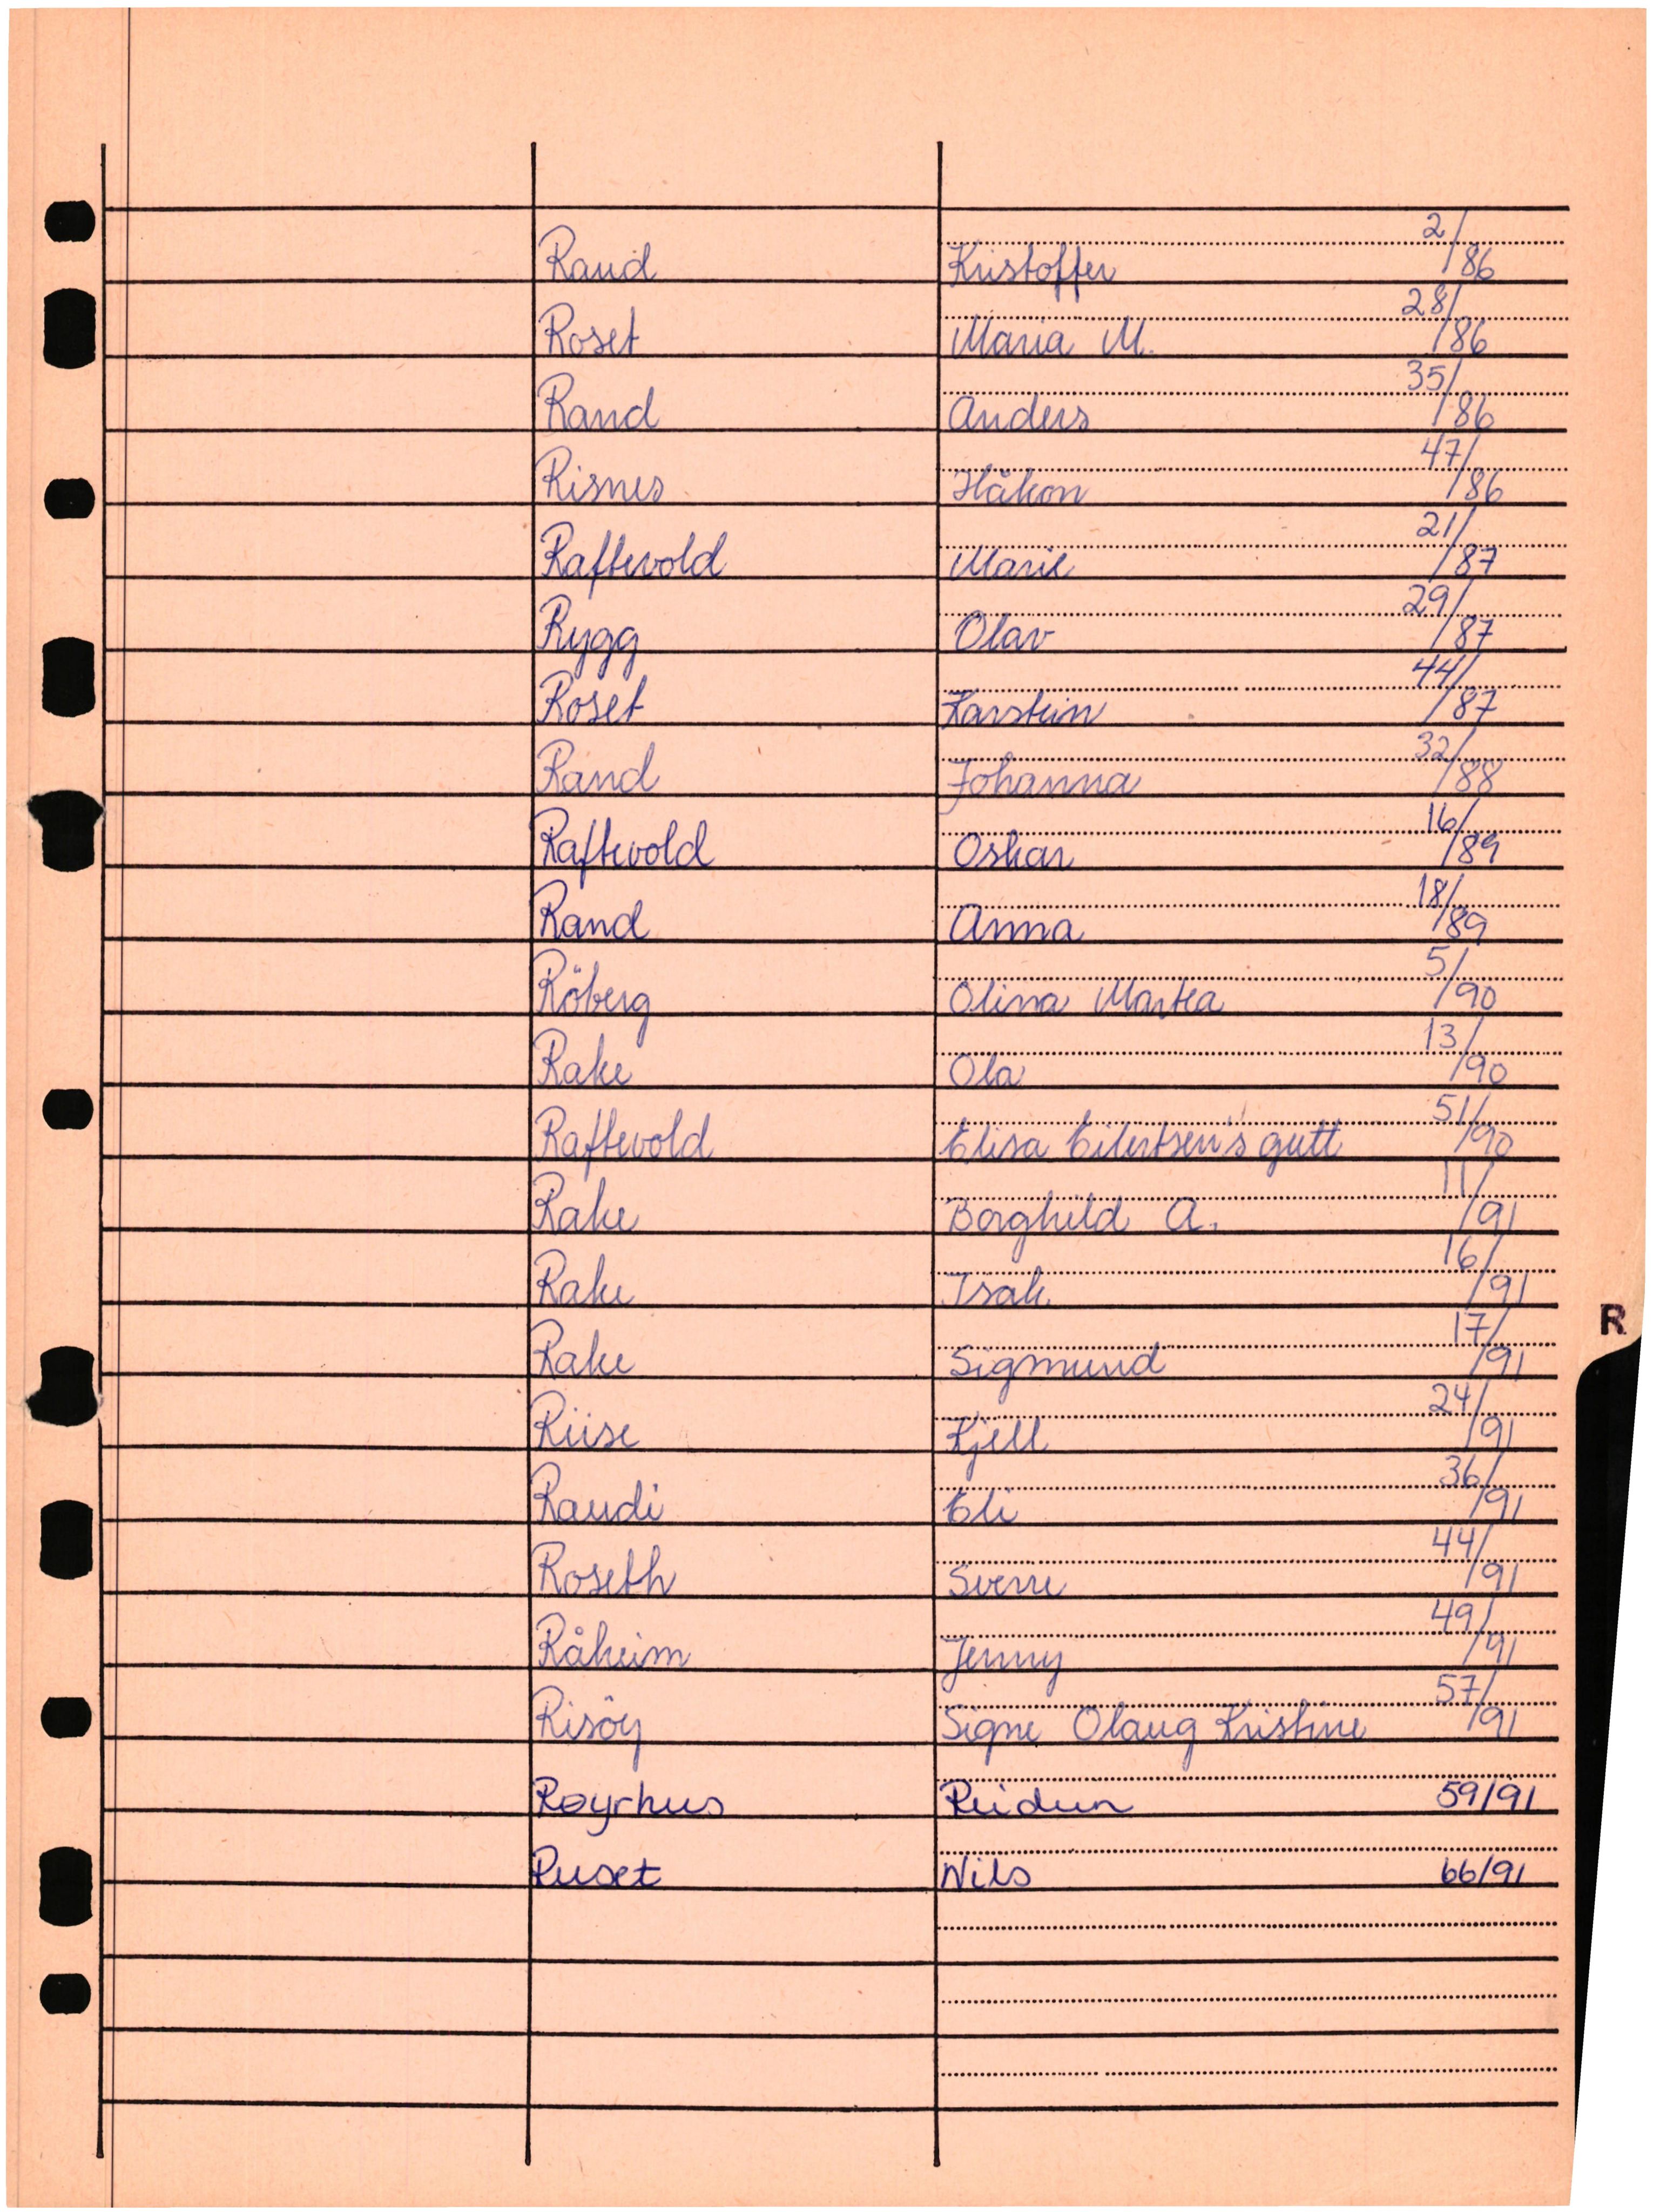 Rand Kristoffer 2/86
Roset Maria M. 28/86
Rand Anders 35/86
Risnes Håkon 47/86
Raftevold Marie 21/87
Rygg Olav 29/87
Roset Karstein 44/87
Rand Johanna 32/88
Raftevold Oskar 16/89
Rand Anna 18/89
Röberg Olina Martea 5/90
Rake Ola 13/90
Raftevold Elisa Eilertsen's gutt 51/90
Rake Borghild A. 11/91
Rake Isak 16/91
R
Rake Sigmund 17/91
Riise Kjell 24/91
Raudi Eli 36/91
Roseth Sverre 44/91
Råheim Jenny 49/91
Risöy Signe Olaug Kristine 57/91
Røyrhus Reidun 59/91
Ruset Nils 66/91